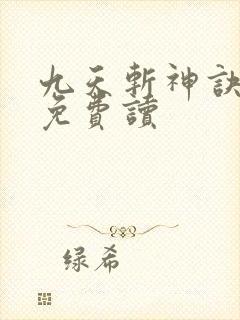 九天斬神訣
免費讀
绿希